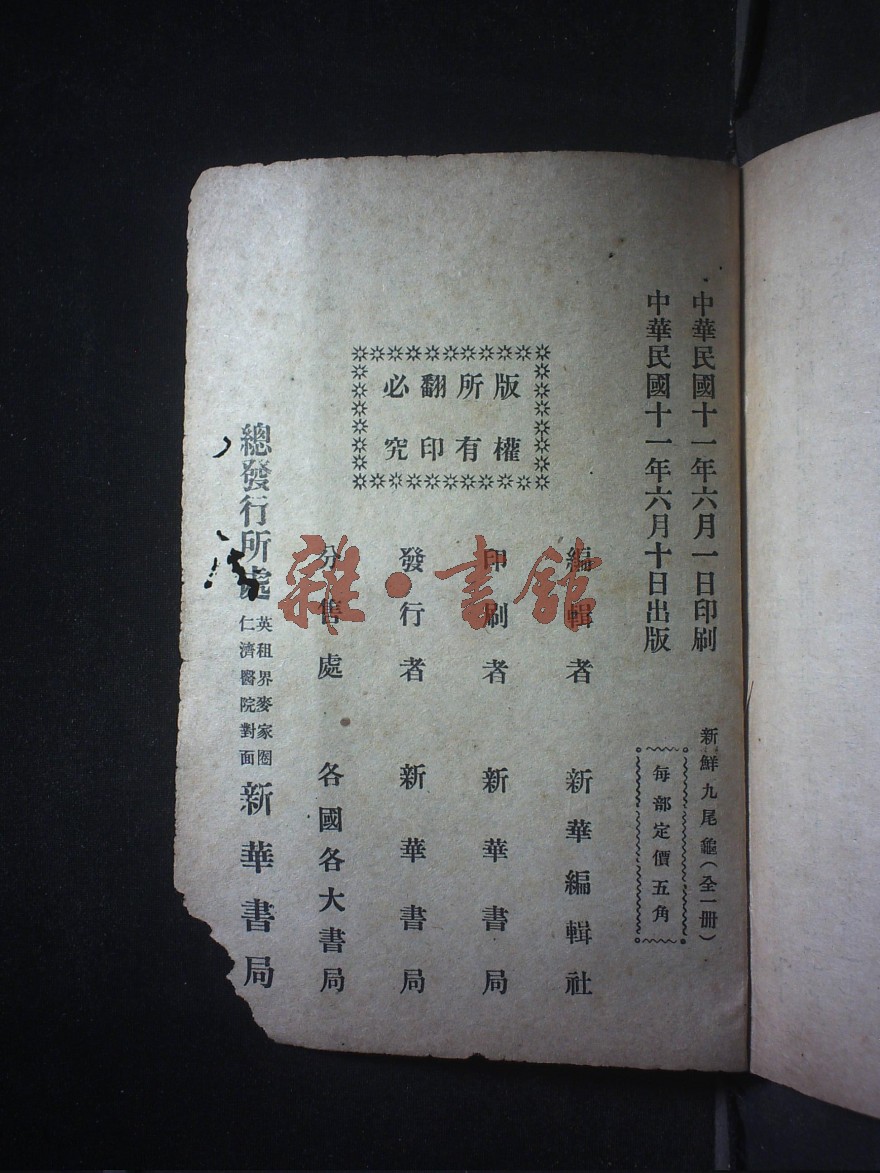 中華民國十一年六月一日印刷
中華民國十一年六月十日出版
新鮮九尾龜(全一册)
每部定價五角
版權
所有
翻印
必究
編輯者 新華編輯社
印刷者 新華書局
發行者 新華書局
分售處 各國各大書局
總發行所處 英租界麥家圈
仁濟醫院對面 新華書局
雜·書館